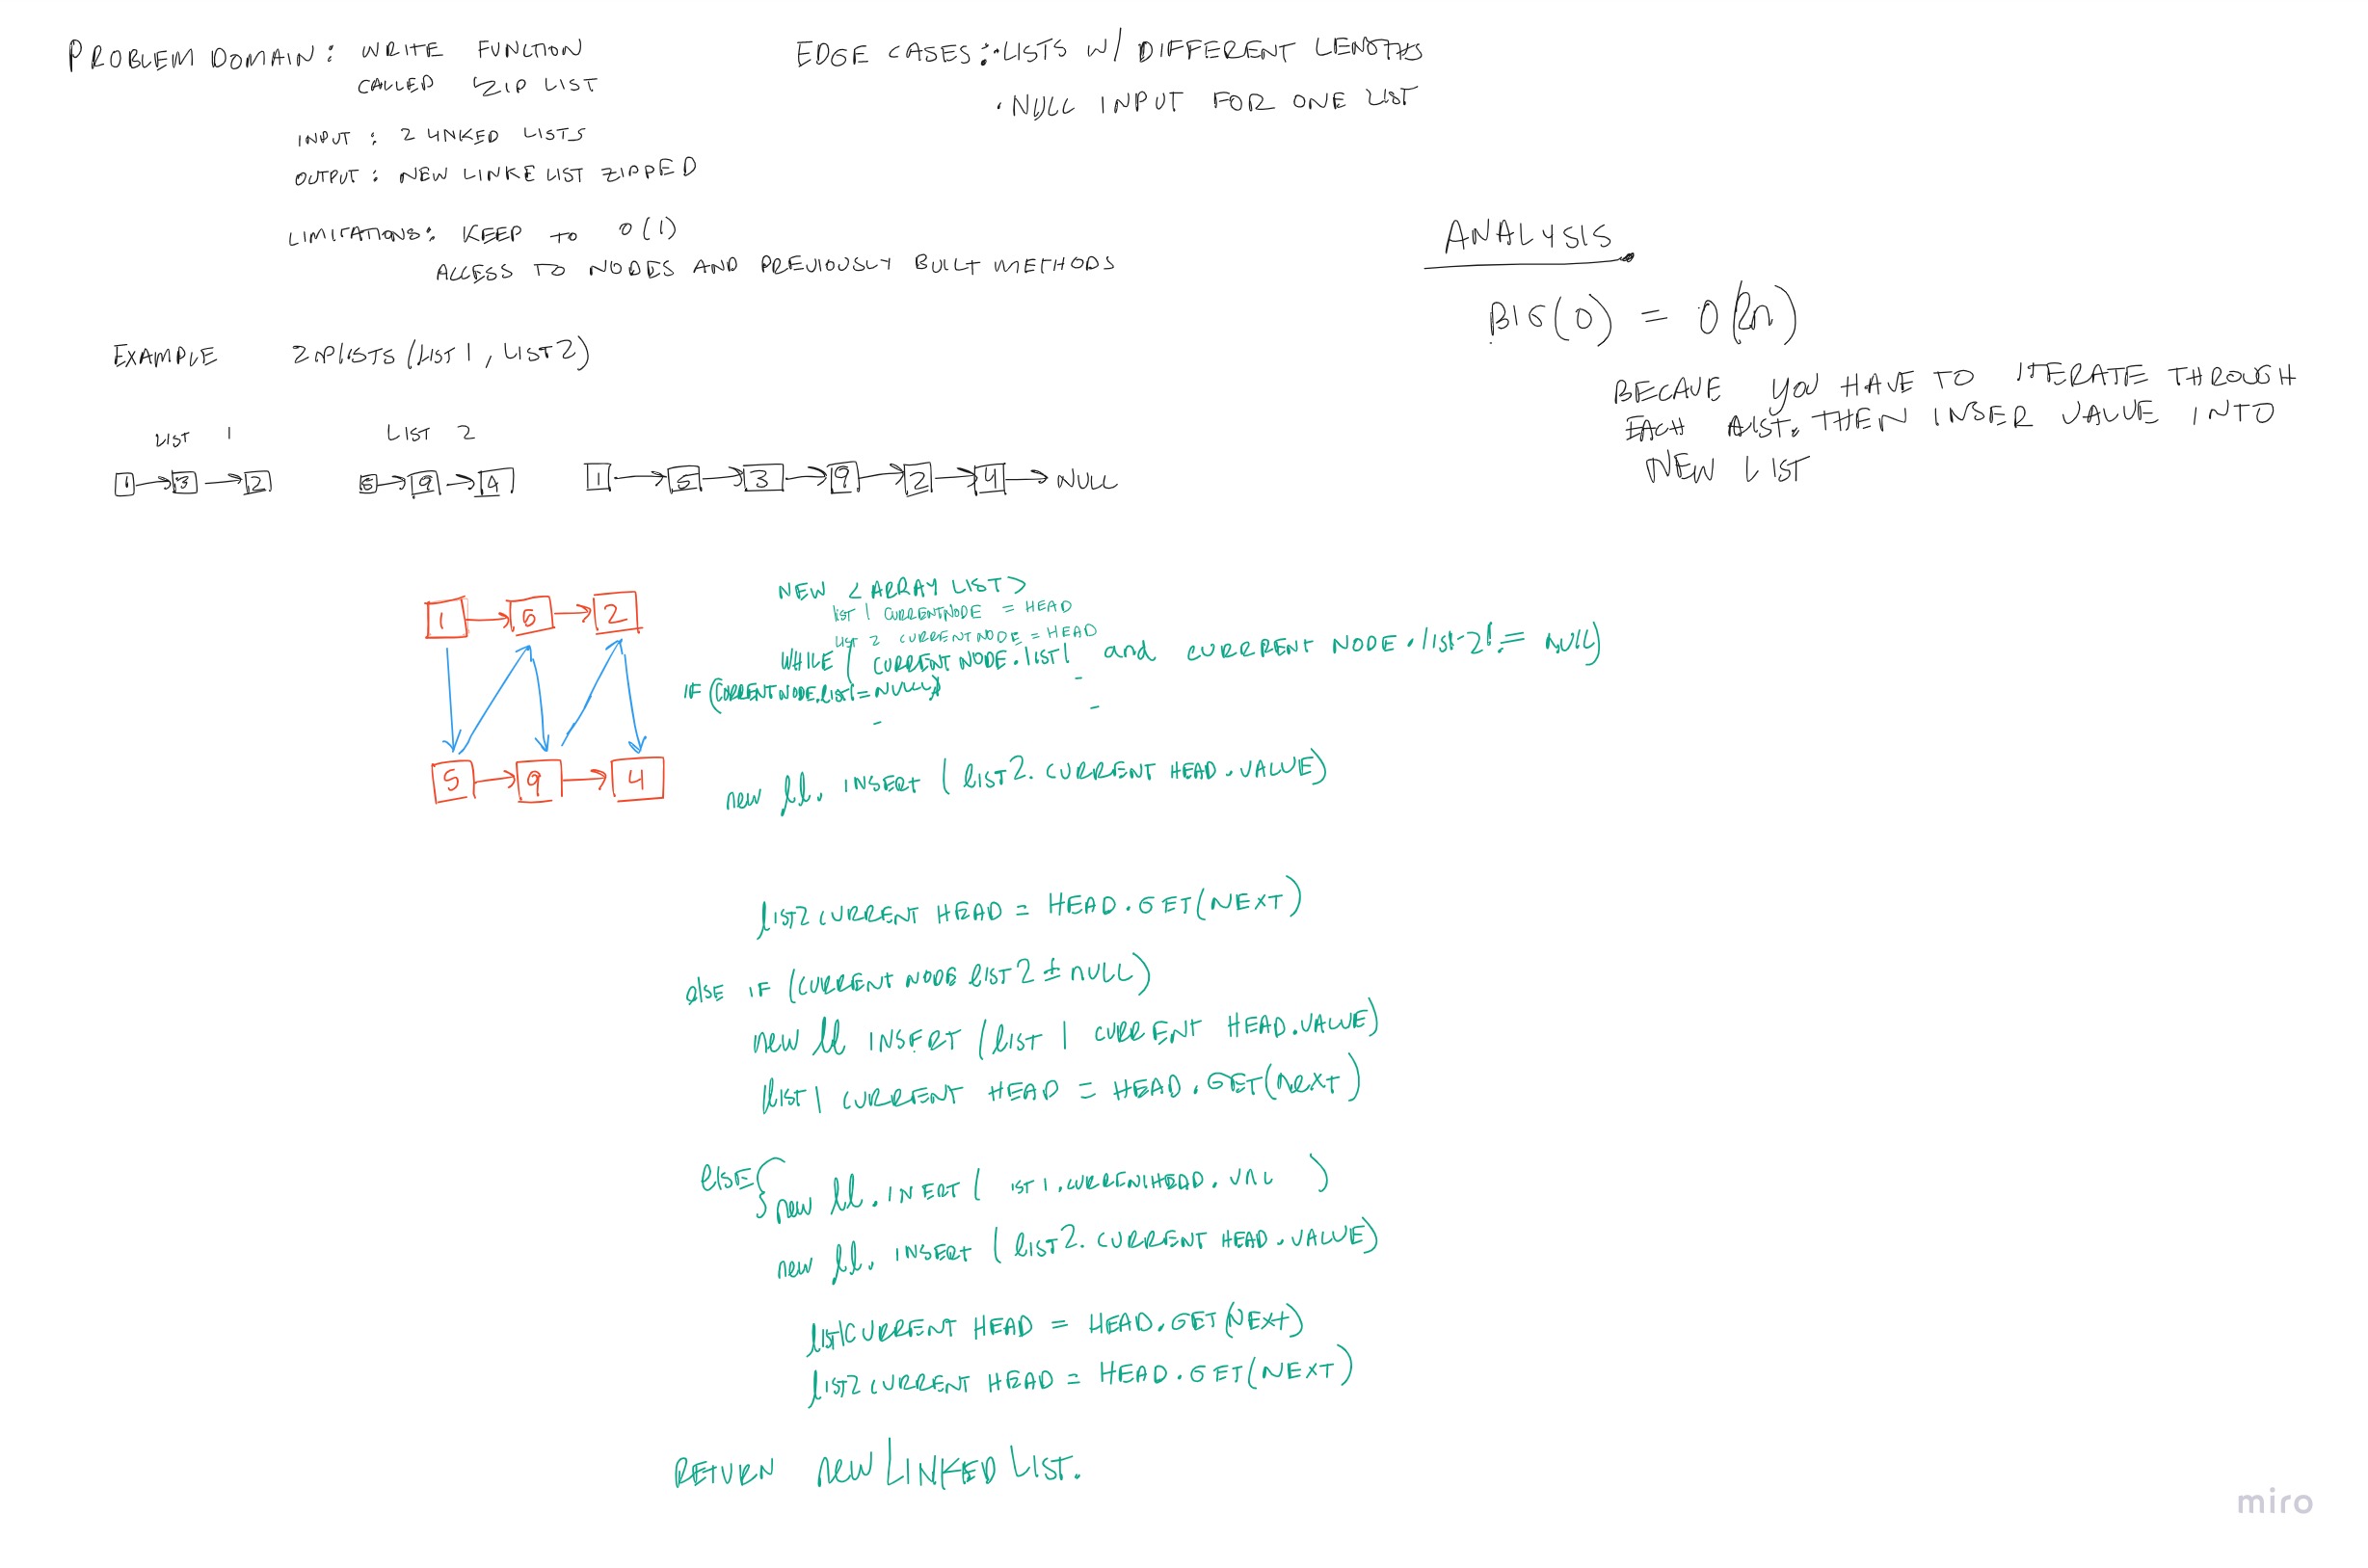 PROBLEM DOMAIN: WRITE FUNCTION
CALLED ZIP LIST
INPUT: 2 LINKED LISTS
OUTPUT: NEW LINKE LIST ZIPPED
LIMITATIONS: KEEP TO O(1)
ACCESS TO NODES AND PREVIOUSLY BUILT METHODS
EDGE CASES: • LISTS W/ DIFFERENT LENGTHS
• NULL INPUT FOR ONE LIST
ANALYSIS
BIG(O) = O(2n)
BECAUE YOU HAVE TO ITERATE THROUGH
EACH LIST. THEN INSER VALUE INTO
NEW LIST
EXAMPLE ZIPLISTS (LIST 1, LIST 2)
LIST 1 LIST 2
1 3 2 5 9 4 1 5 3 9 2 4 NULL
1 6 2
5 9 4
NEW <ARRAY LIST>
LIST 1 CURRENTNODE = HEAD
LIST 2 CURRENT NODE = HEAD
WHILE ( CURRENT NODE.list1 and CURRRENT NODE.list-2!= NULL)
IF (CURRENT NODE.list1 = NULL)
new ll. INSERT ( list2. CURRENT HEAD.VALUE)
list2 CURRENT HEAD = HEAD.GET(NEXT)
else IF (CURRENT NODE list2 = NULL)
new ll INSERT (list 1 CURRENT HEAD.VALUE)
list 1 CURRENT HEAD = HEAD.GET(NEXT)
else{ new ll. INERT ( IST1.CURRENTHEAD.VAL )
new ll. INSERT ( list2. CURRENT HEAD.VALUE)
list1CURRENT HEAD = HEAD.GET(NEXT)
list2 CURRENT HEAD = HEAD.GET(NEXT)
RETURN new LINKED LIST.
miro